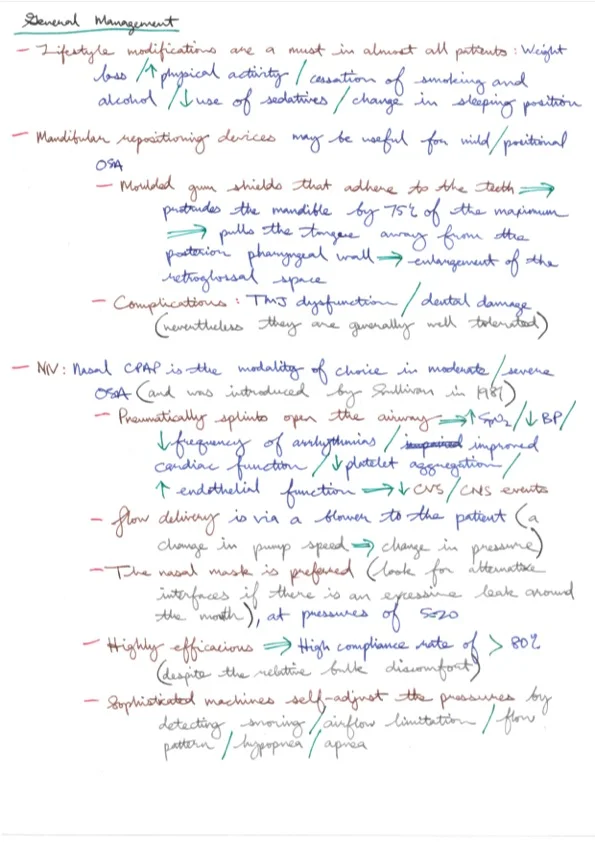 General Management
– Lifestyle modifications are a must in almost all patients : Weight
loss / ↑ physical activity / cessation of smoking and
alcohol / ↓ use of sedatives / change in sleeping position
– Mandibular repositioning devices may be useful for mild / positional
OSA
– Moulded gum shields that adhere to the teeth ⇒
protrudes the mandible by 75% of the maximum
⇒ pulls the tongue away from the
posterior pharyngeal wall → enlargement of the
retroglossal space
– Complications : TMJ dysfunction / dental damage
(nevertheless they are generally well tolerated)
– NIV : Nasal CPAP is the modality of choice in moderate / severe
OSA (and was introduced by Sullivan in 1981)
– Pneumatically splints open the airway ⇒ ↑ SpO2 / ↓ BP /
↓ frequency of arrhythmias / impaired improved
cardiac function / ↓ platelet aggregation /
↑ endothelial function ⇒ ↓ CVS / CNS events
– Flow delivery is via a blower to the patient (a
change in pump speed ⇒ change in pressure)
– The nasal mask is preferred (look for alternative
interfaces if there is an excessive leak around
the mouth), at pressures of
– Highly efficacious ⇒ High compliance rate of > 80%
(despite the relative bulk discomfort)
– Sophisticated machines self-adjust the pressures by
detecting snoring / airflow limitation / flow
pattern / hypopnea / apnea